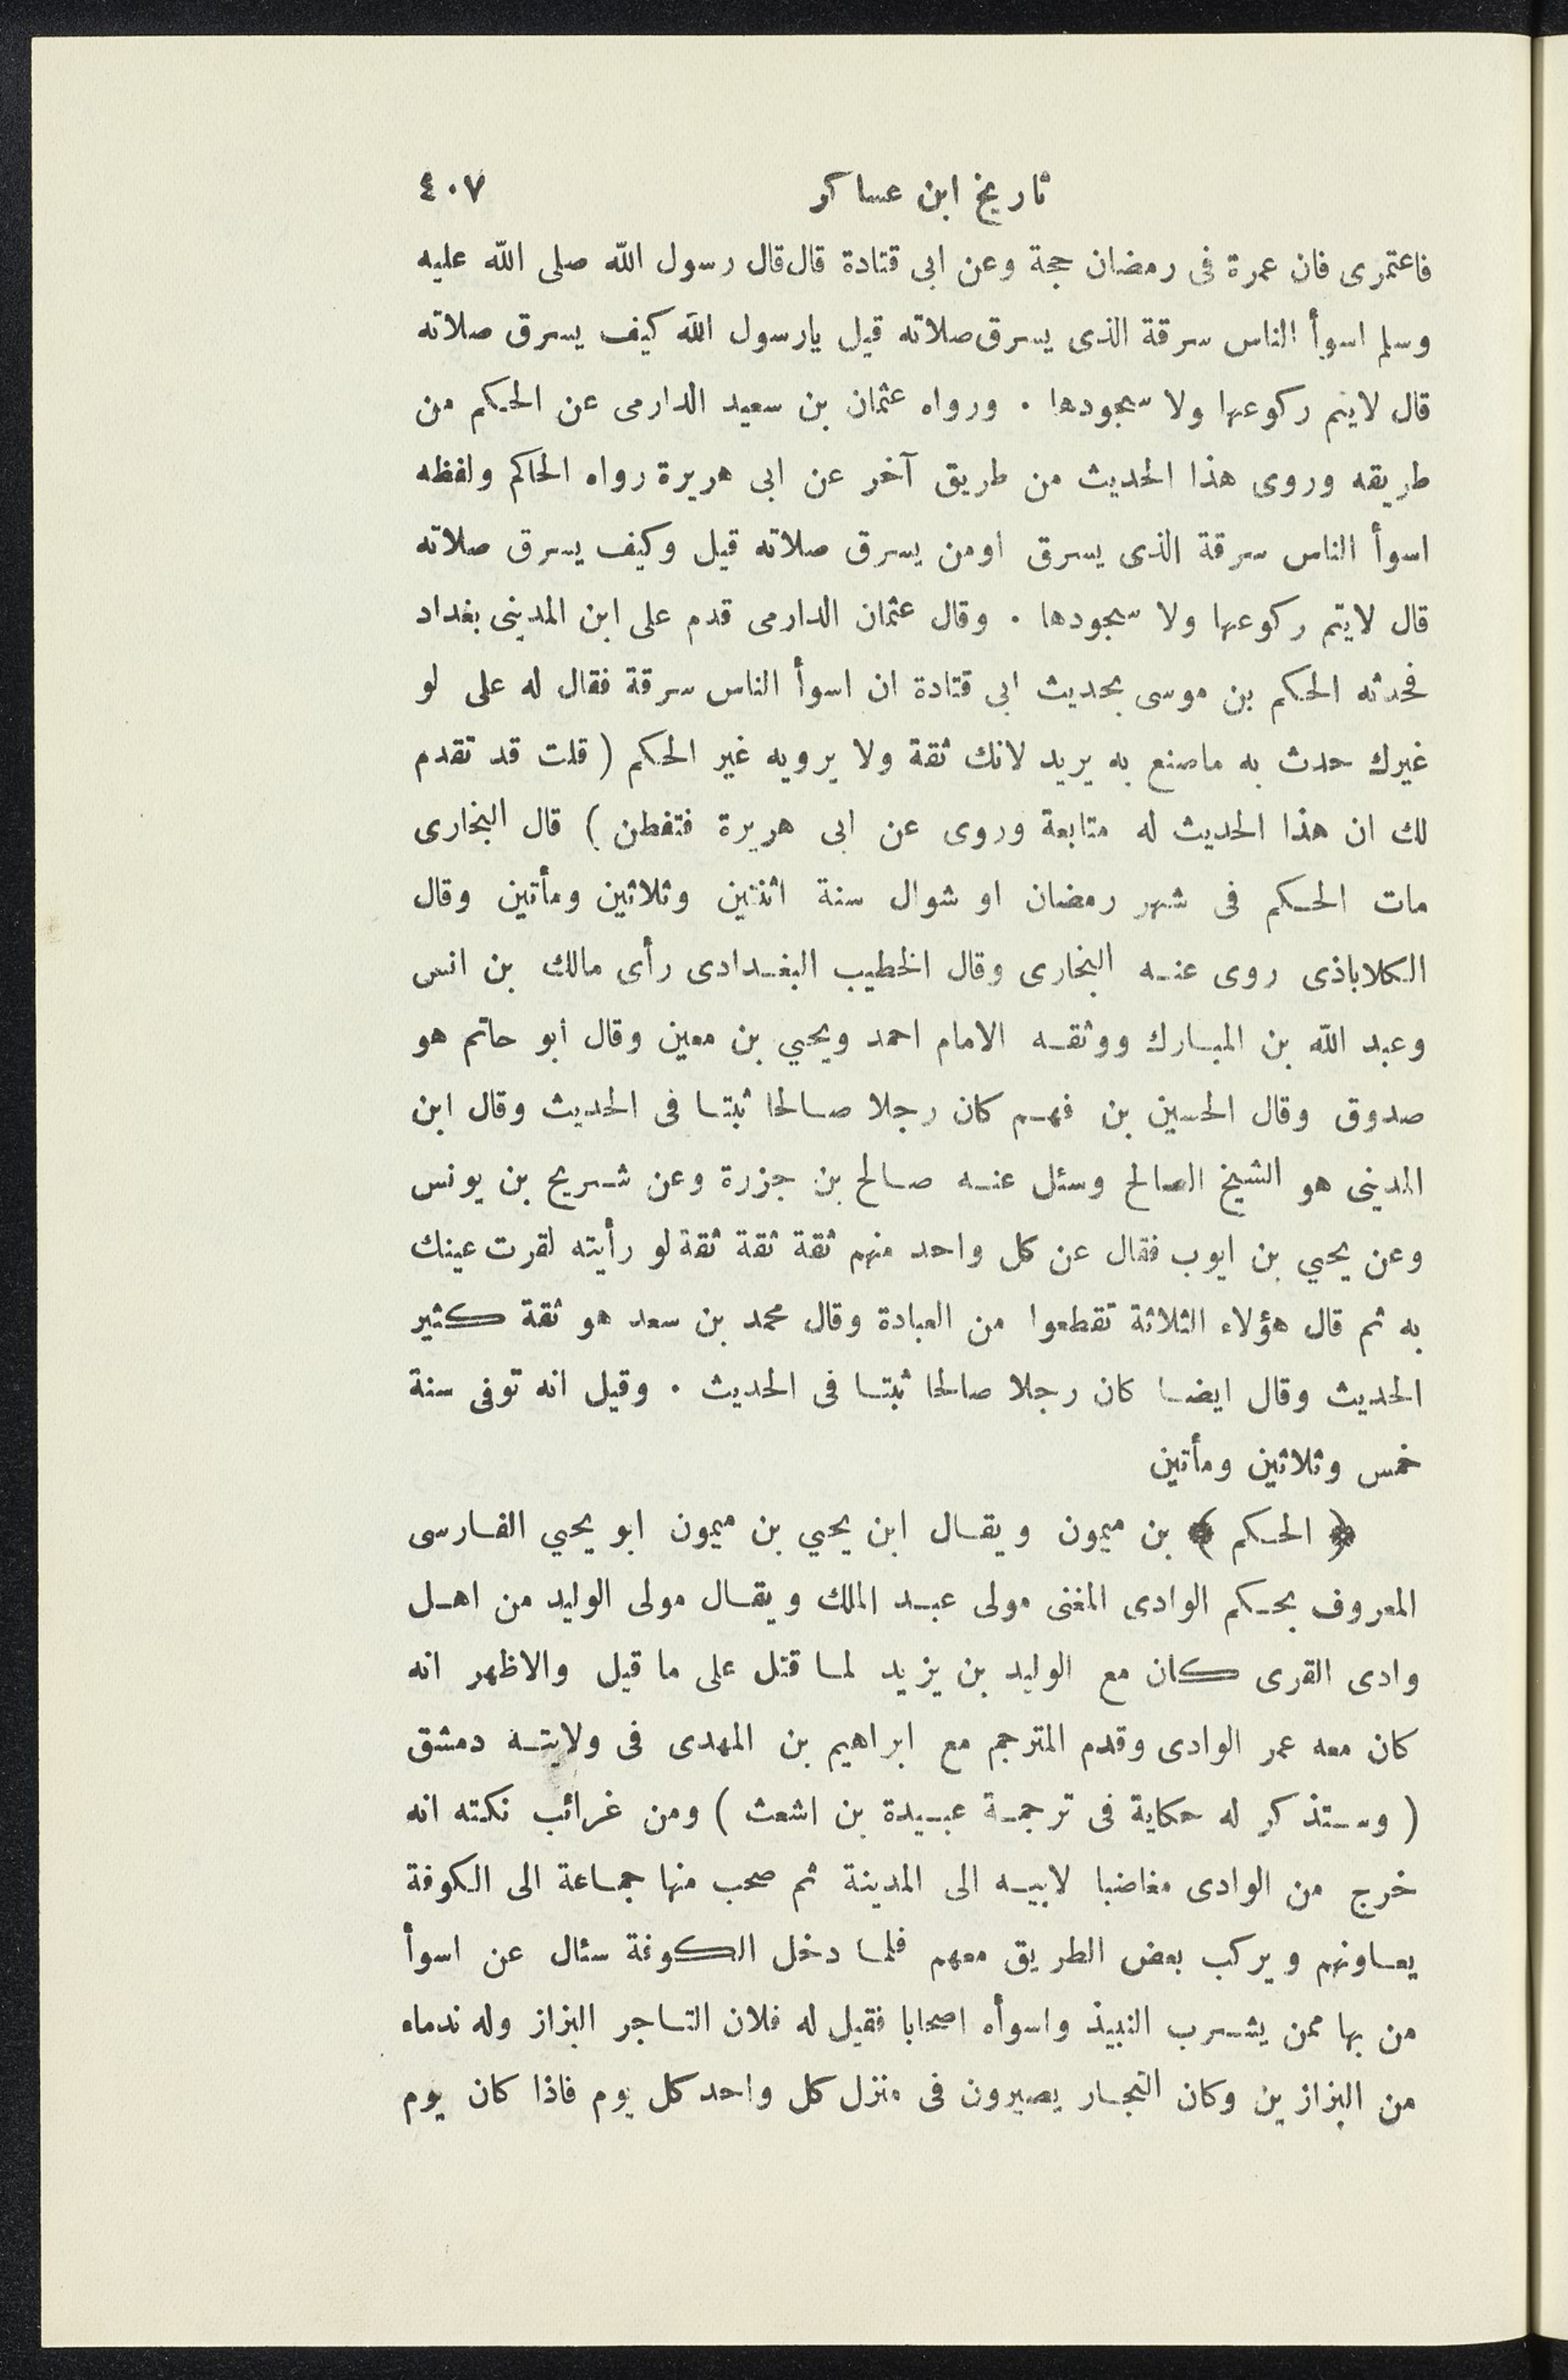 تاريخ ابن عساكر ٤٠٧
فاعتمرى فان عمرة فى رمضان حجة وعن ابى قتادة قال قال رسول الله صلى الله عليه
وسلم اسوأ الناس سرقة الذى يسرق صلاته قيل يارسول الله كيف يسرق صلاته
قال لايتم ركوعها ولا سجودها . ورواه عثمان بن سعيد الدارمى عن الحكم من
طريقه وروى هذا الحديث من طريق آخر عن ابى هريرة رواه الحاكم ولفظه
اسوأ الناس سرقة الذى يسرق اومن يسرق صلاته قيل وكيف يسرق صلاته
قال لايتم ركوعها ولا سجودها . وقال عثمان الدارمى قدم على ابن المدينى بغداد
فحدثه الحكم بن موسى بحديث ابى قتادة ان اسوأ الناس سرقة فقال له على لو
غيرك حدث به ماصنع به يريد لانك ثقة ولا يرويه غير الحكم ( قلت قد تقدم
لك ان هذا الحديث له متابعة وروى عن ابى هريرة فتفطن ) قال البخارى
مات الحكم فى شهر رمضان او شوال سنة اثنتين وثلاثين ومأتين وقال
الكلاباذى روى عنه البخارى وقال الخطيب البغدادى رأى مالك بن انس
وعبد الله بن المبارك ووثقه الامام احمد ويحيي بن معين وقال أبو حاتم هو
صدوق وقال الحسين بن فهم كان رجلا صالحا ثبتا فى الحديث وقال ابن
المدينى هو الشيخ الصالح وسئل عنه صالح بن جزرة وعن شريح بن يونس
وعن يحيي بن ايوب فقال عن كل واحد منهم ثقة ثقة ثقة لو رأيته لقرت عينك
به ثم قال هؤلاء الثلاثة تقطعوا من العبادة وقال محمد بن سعد هو ثقة كثير
الحديث وقال ايضا كان رجلا صالحا ثبتا فى الحديث . وقيل انه توفى سنة
خمس وثلاثين ومأتين
﴿ الحكم ﴾ بن ميمون ويقال ابن يحيي بن ميمون ابو يحيي الفارسى
المعروف بحكم الوادى المغنى مولى عبد الملك ويقال مولى الوليد من اهل
وادى القرى كان مع الوليد بن يزيد لما قتل على ما قيل والاظهر انه
كان معه عمر الوادى وقدم المترجم مع ابراهيم بن المهدى فى ولايته دمشق
( وستذكر له حكاية فى ترجمة عبيدة بن اشعث ) ومن غرائب نكته انه
خرج من الوادى مغاضبا لابيه الى المدينة ثم صحب منها جماعة الى الكوفة
يعاونهم ويركب بعض الطريق معهم فلما دخل الكوفة سئال عن اسوأ
من بها ممن يشرب النبيذ واسوأه اصحابا فقيل له فلان التاجر البزاز وله ندماء
من البزازين وكان التجار يصيرون فى منزل كل واحد كل يوم فاذا كان يوم